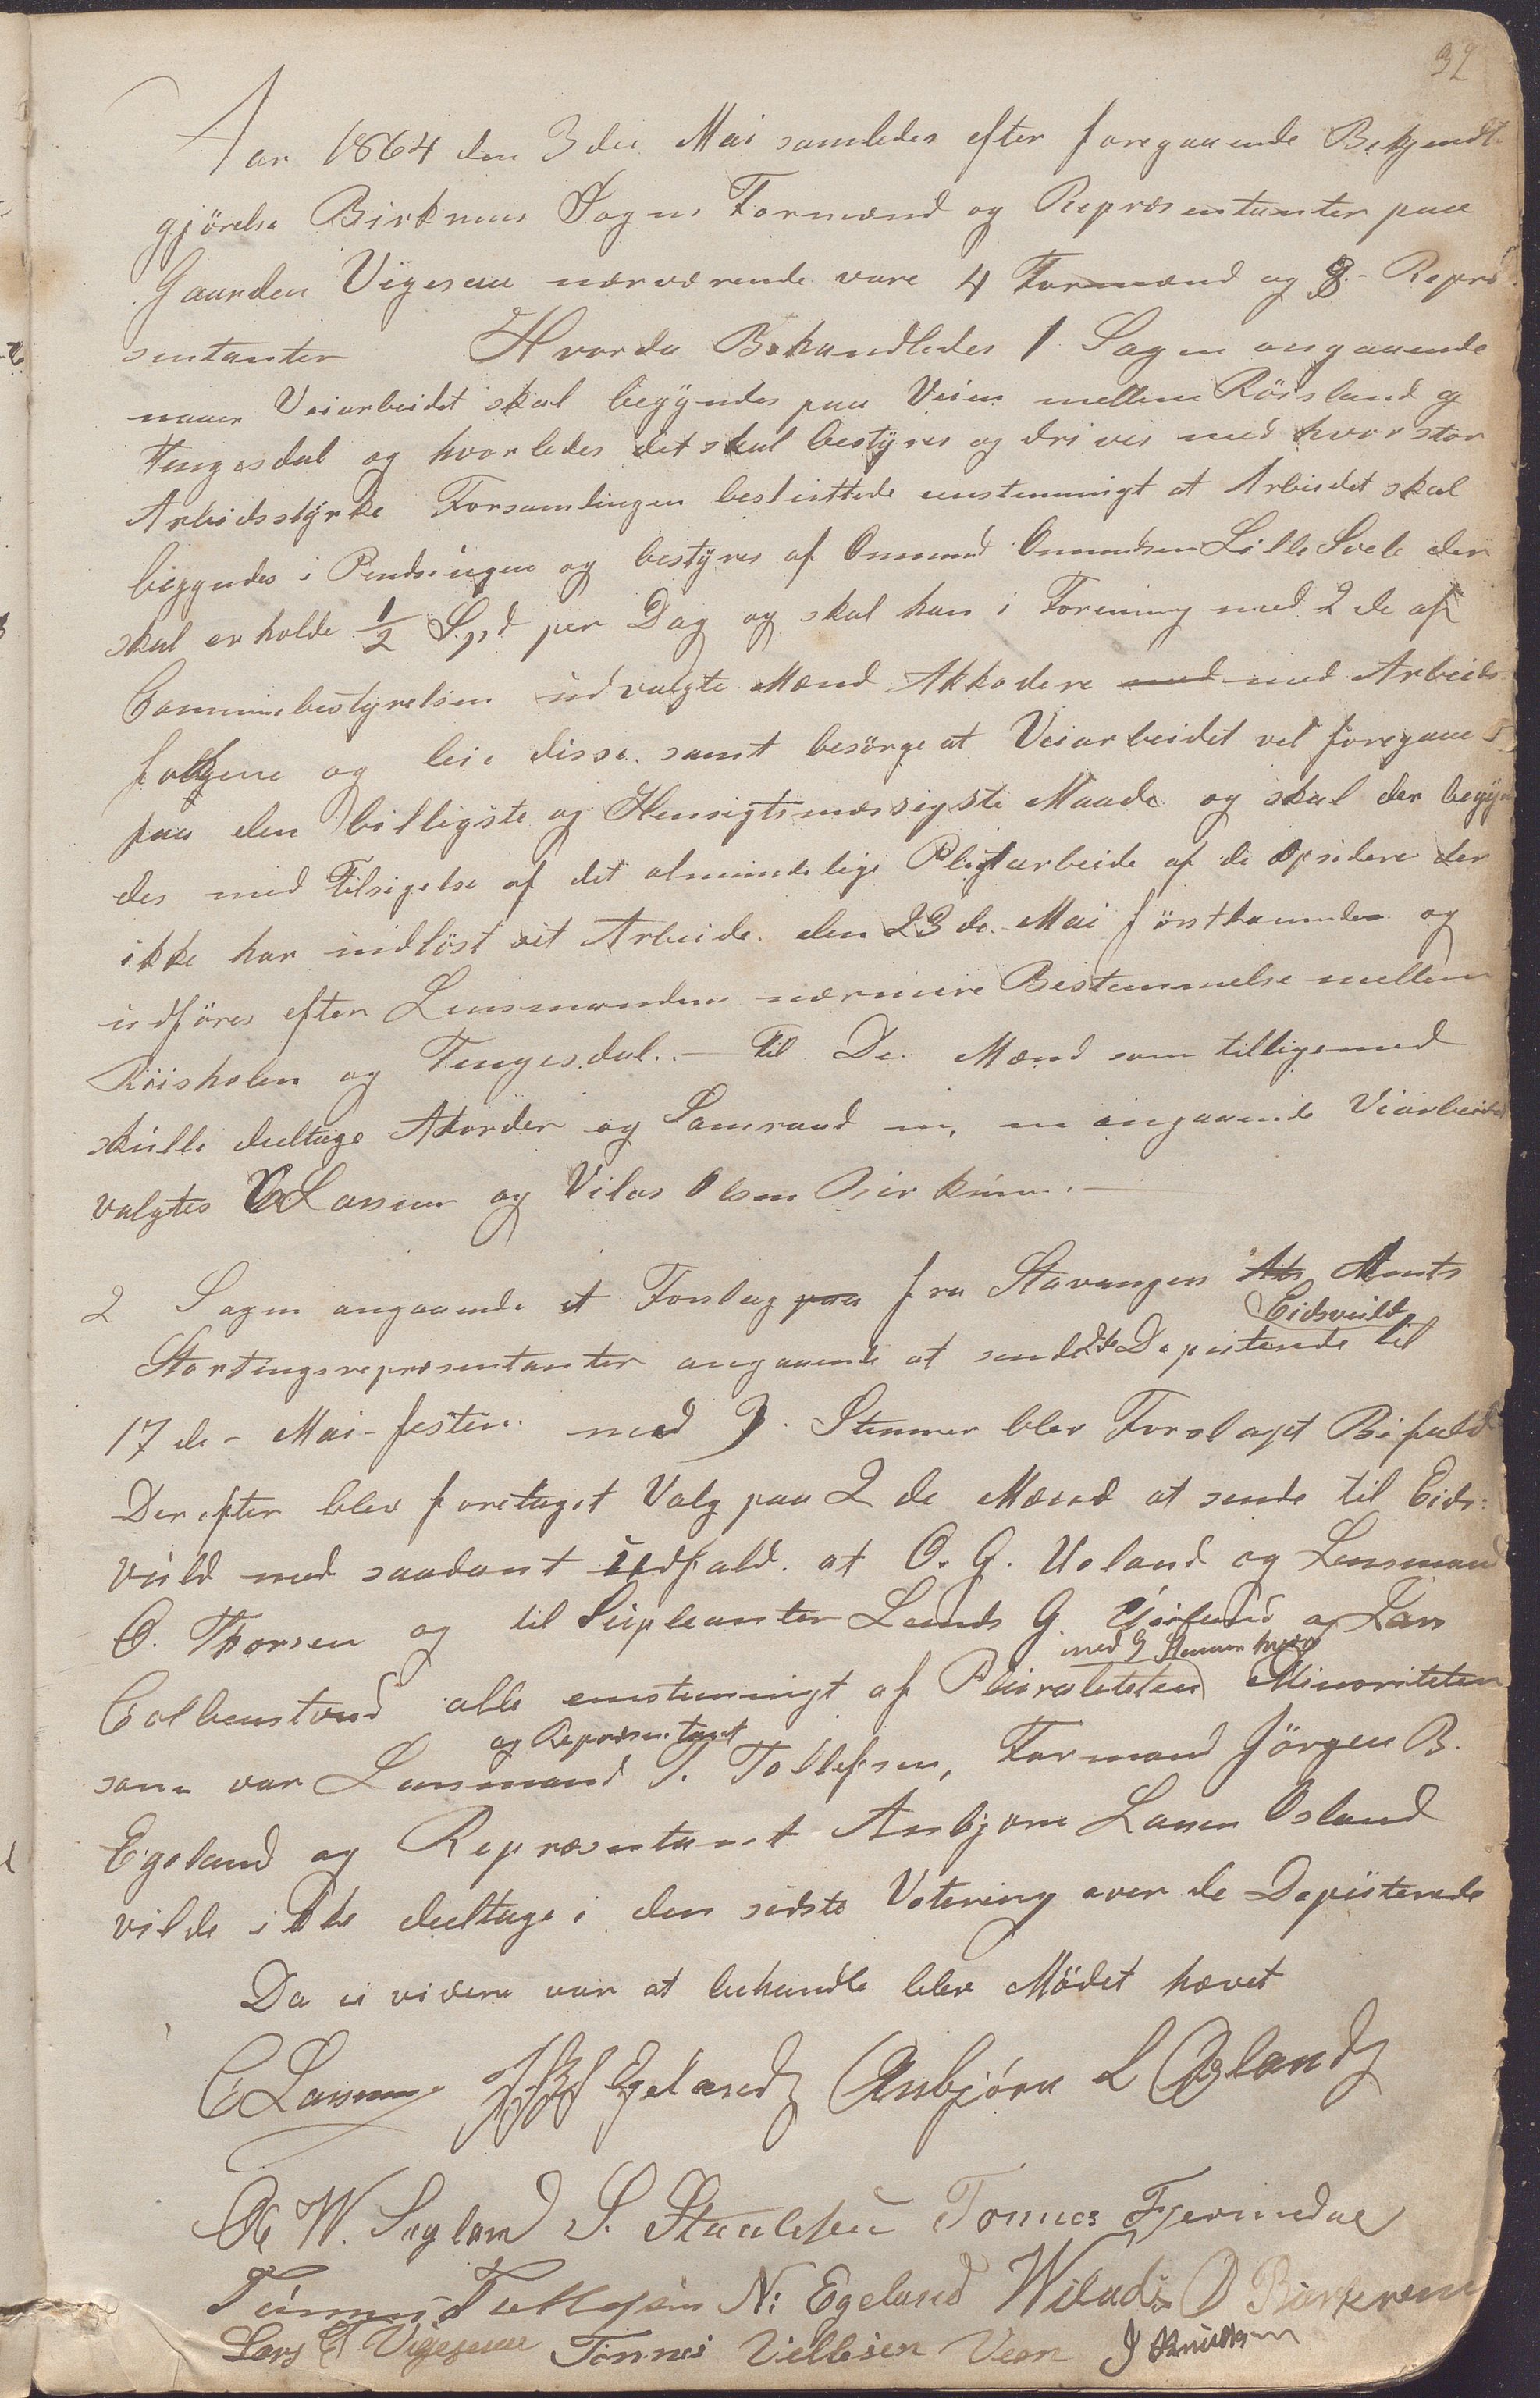 32
Aar 1864 den 3die Mai samledes efter foregaaende Bekjendt
gjörelse Birkrems Sogns Formænd og Repræsentanter paa
Gaarden Vigesaa nærværende vare 4 Formænd og 8 Repræ
sentanter Hvorda Behandledes 1 Sagen angaaende
naar Veiarbeidet skal begyndes paa Veien mellem Röisland og
Tengesdal og hvorledes det skal bestyres og drives med hvor stor
Arbeidsstyrke Forsamlingen besluttede enstemmigt at Arbeidet skal
begyndes i Pindseugen og bestyres af Ommund Ommundsen Lille Svele der
skal erholde 1/2 Spd per Dag og skal han i Forening med 2de af
Communebestyrelsen udvalgte Mænd Akkodere med med Arbeids
folkene og leie disse samt besörge at Veiarbeidet vel foregaaes
paa den billigste og Hensigtsmæssigste Maade og skal der begyn
des med Tilsigelse af det almindelige Pligtarbeide af de Opsidere der
ikke har indlöst sit Arbeide den 23de Mai förstkommende og
udföres efter Lensmandens nærmere Bestemmelse mellem
Röisholen og Tengesdal. – Til De Mænd som tilligemed
skulle deeltage Akorder og Samraad m, m angaaende Veiarbeidet
valgtes C Lassen og Vilas Olsen Birkrem. –
2 Sagen angaaende et Forslag paa fra Stavanger Ats Amts
Eidsvuld
Stortingsrepræsentanter angaaende at sende 2de Deputerede til
17de – Mai-festen med 9 Stemmer blev Forslaget Bifaldt
Derefter blev foretaget Valg paa 2de Mænd at sende til Eids:
vuld med saadant udfald at O. G. Ueland og Lensmand
O. Thorsen og til Supleanter G. og Lars
med 9 Stemmer hver
alle enstemmigt af Pluraliteten Minoriteten
og Repræsentant
som var Lensmand S. Tollefsen, Formand Jörgen B.
Egeland og Repræsentant Asbjörn Larsen Osland
vilde ikke deeltage i den sidste Votering over de Deputerede
Da ei videre var at behandle blev Mödet hævet
C Lassen J B Egeland Asbjörn L Osland
O W. Sogland S. Staalesen Tönnes Fjermedal
Tönnes Tollefsen N: Egeland Wilads O Birkrem
Lars T Vigesaae Tönnes Villesen Veen J Knudsen